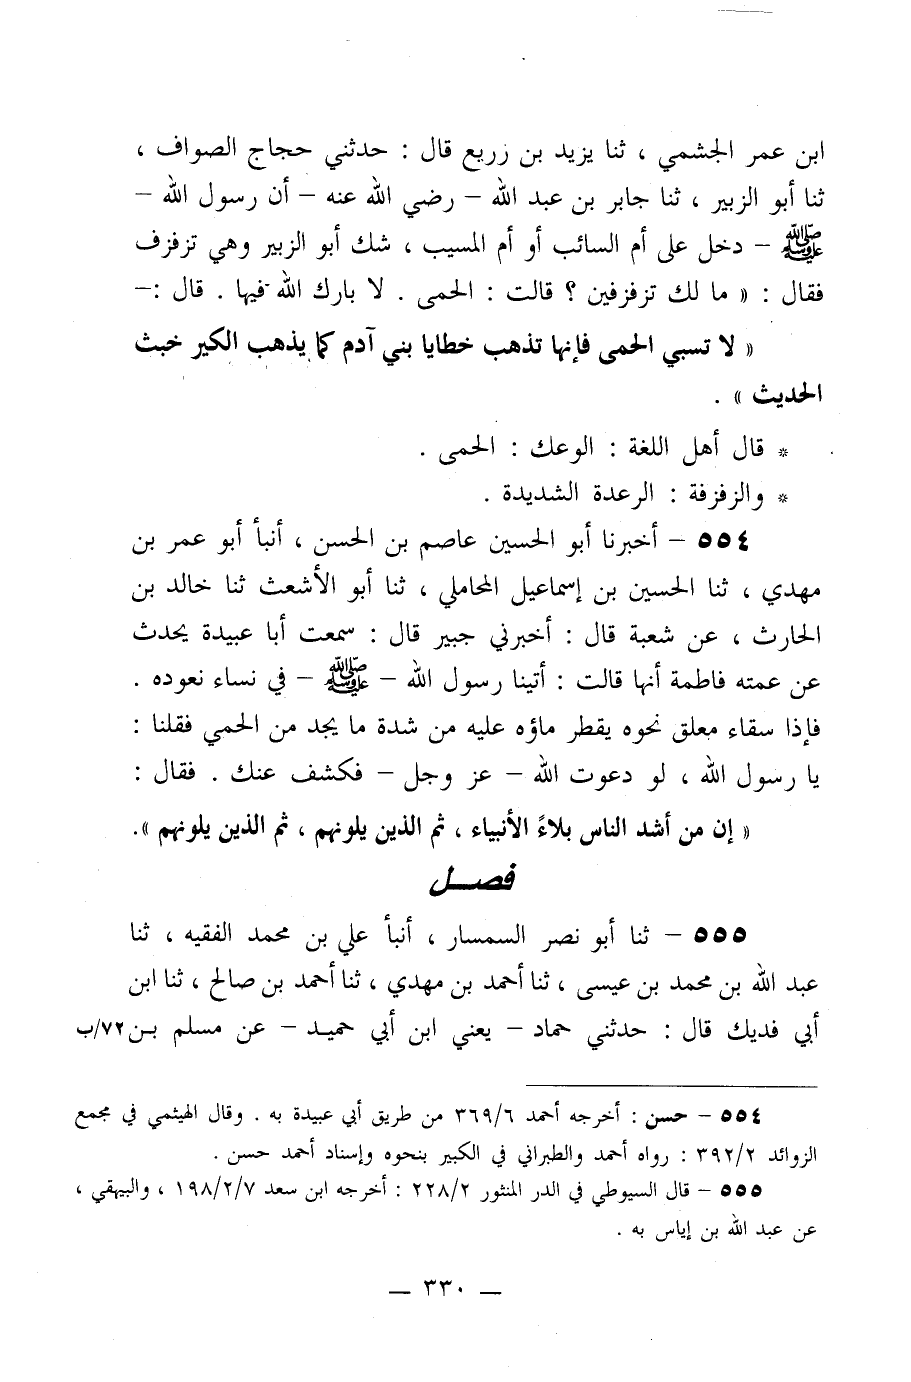 ابن عمر الجشمي ، ثنا يزيد بن زريع قال : حدثني حجاج الصواف ،
ثنا أبو الزبير ، ثنا جابر بن عبد الله – رضي الله عنه – أن رسول الله –
ﷺ – دخل على أم السائب أو أم المسيب ، شك أبو الزبير وهي تزفزف
فقال : « ما لك تزفزفين ؟ قالت : الحمى . لا بارك الله فيها . قال :–
« لا تسبي الحمى فإنها تذهب خطايا بني آدم كما يذهب الكير خبث
الحديث » .
* قال أهل اللغة : الوعك : الحمى .
* والزفزفة : الرعدة الشديدة .
٥٥٤ – أخبرنا أبو الحسين عاصم بن الحسن ، أنبأ أبو عمر بن
مهدي ، ثنا الحسين بن إسماعيل المحاملي ، ثنا أبو الأشعث ثنا خالد بن
الحارث ، عن شعبة قال : أخبرني جبير قال : سمعت أبا عبيدة يحدث
عن عمته فاطمة أنها قالت : أتينا رسول الله – ﷺ – في نساء نعوده .
فإذا سقاء معلق نحوه يقطر ماؤه عليه من شدة ما يجد من الحمي فقلنا :
يا رسول الله ، لو دعوت الله – عز وجل – فكشف عنك . فقال :
« إن من أشد الناس بلاءً الأنبياء ، ثم الذين يلونهم ، ثم الذين يلونهم ».
فصل
٥٥٥ – ثنا أبو نصر السمسار ، أنبأ علي بن محمد الفقيه ، ثنا
عبد الله بن محمد بن عيسى ، ثنا أحمد بن مهدي ، ثنا أحمد بن صالح ، ثنا ابن
أبي فديك قال : حدثني حماد – يعني ابن أبي حميد – عن مسلم بن ٧٢/ب
٥٥٤ – حسن : أخرجه أحمد ٣٦٩/٦ من طريق أبي عبيدة به . وقال الهيثمي في مجمع
الزوائد ٣٩٢/٢ : رواه أحمد والطبراني في الكبير بنحوه وإسناد أحمد حسن .
٥٥٥ – قال السيوطي في الدر المنثور ٢٢٨/٢ : أخرجه ابن سعد ١٩٨/٢/٧ ، والبيهقي ،
عن عبد الله بن إياس به .
— ٣٣٠ —